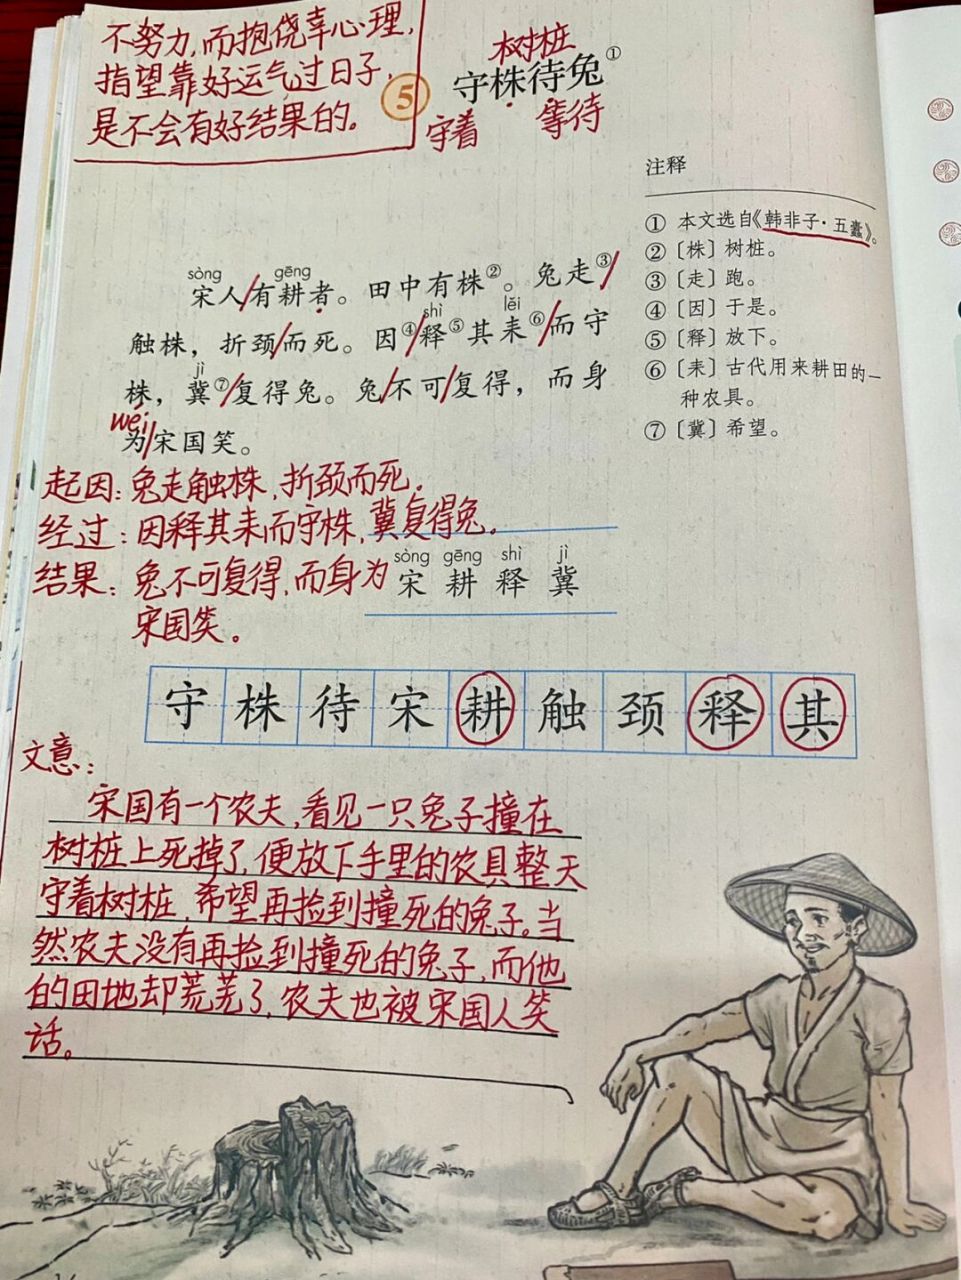 不努力,而抱侥幸心理,
指望靠好运气过日子,
是不会有好结果的。
树桩
⑤ 守株待兔①
守着 等待
注释
① 本文选自《韩非子·五蠹》。
② 〔株〕树桩。
③ 〔走〕跑。
④ 〔因〕于是。
⑤ 〔释〕放下。
⑥ 〔耒〕古代用来耕田的一
种农具。
⑦ 〔冀〕希望。
sòng gēng
宋人/有耕者。田中有株②。兔走③/
shì lěi
触株,折颈/而死。因④/释⑤其耒⑥/而守
jì
株,冀⑦/复得兔。兔/不可/复得,而身
wéi
为/宋国笑。
起因:兔走触株,折颈而死。
经过:因释其耒而守株,冀复得兔。
结果:兔不可复得,而身为
宋国笑。
sòng gēng shì jì
宋 耕 释 冀
守 株 待 宋 耕 触 颈 释 其
文意:
宋国有一个农夫,看见一只兔子撞在
树桩上死掉了,便放下手里的农具整天
守着树桩,希望再捡到撞死的兔子。当
然农夫没有再捡到撞死的兔子,而他
的田地却荒芜了,农夫也被宋国人笑
话。